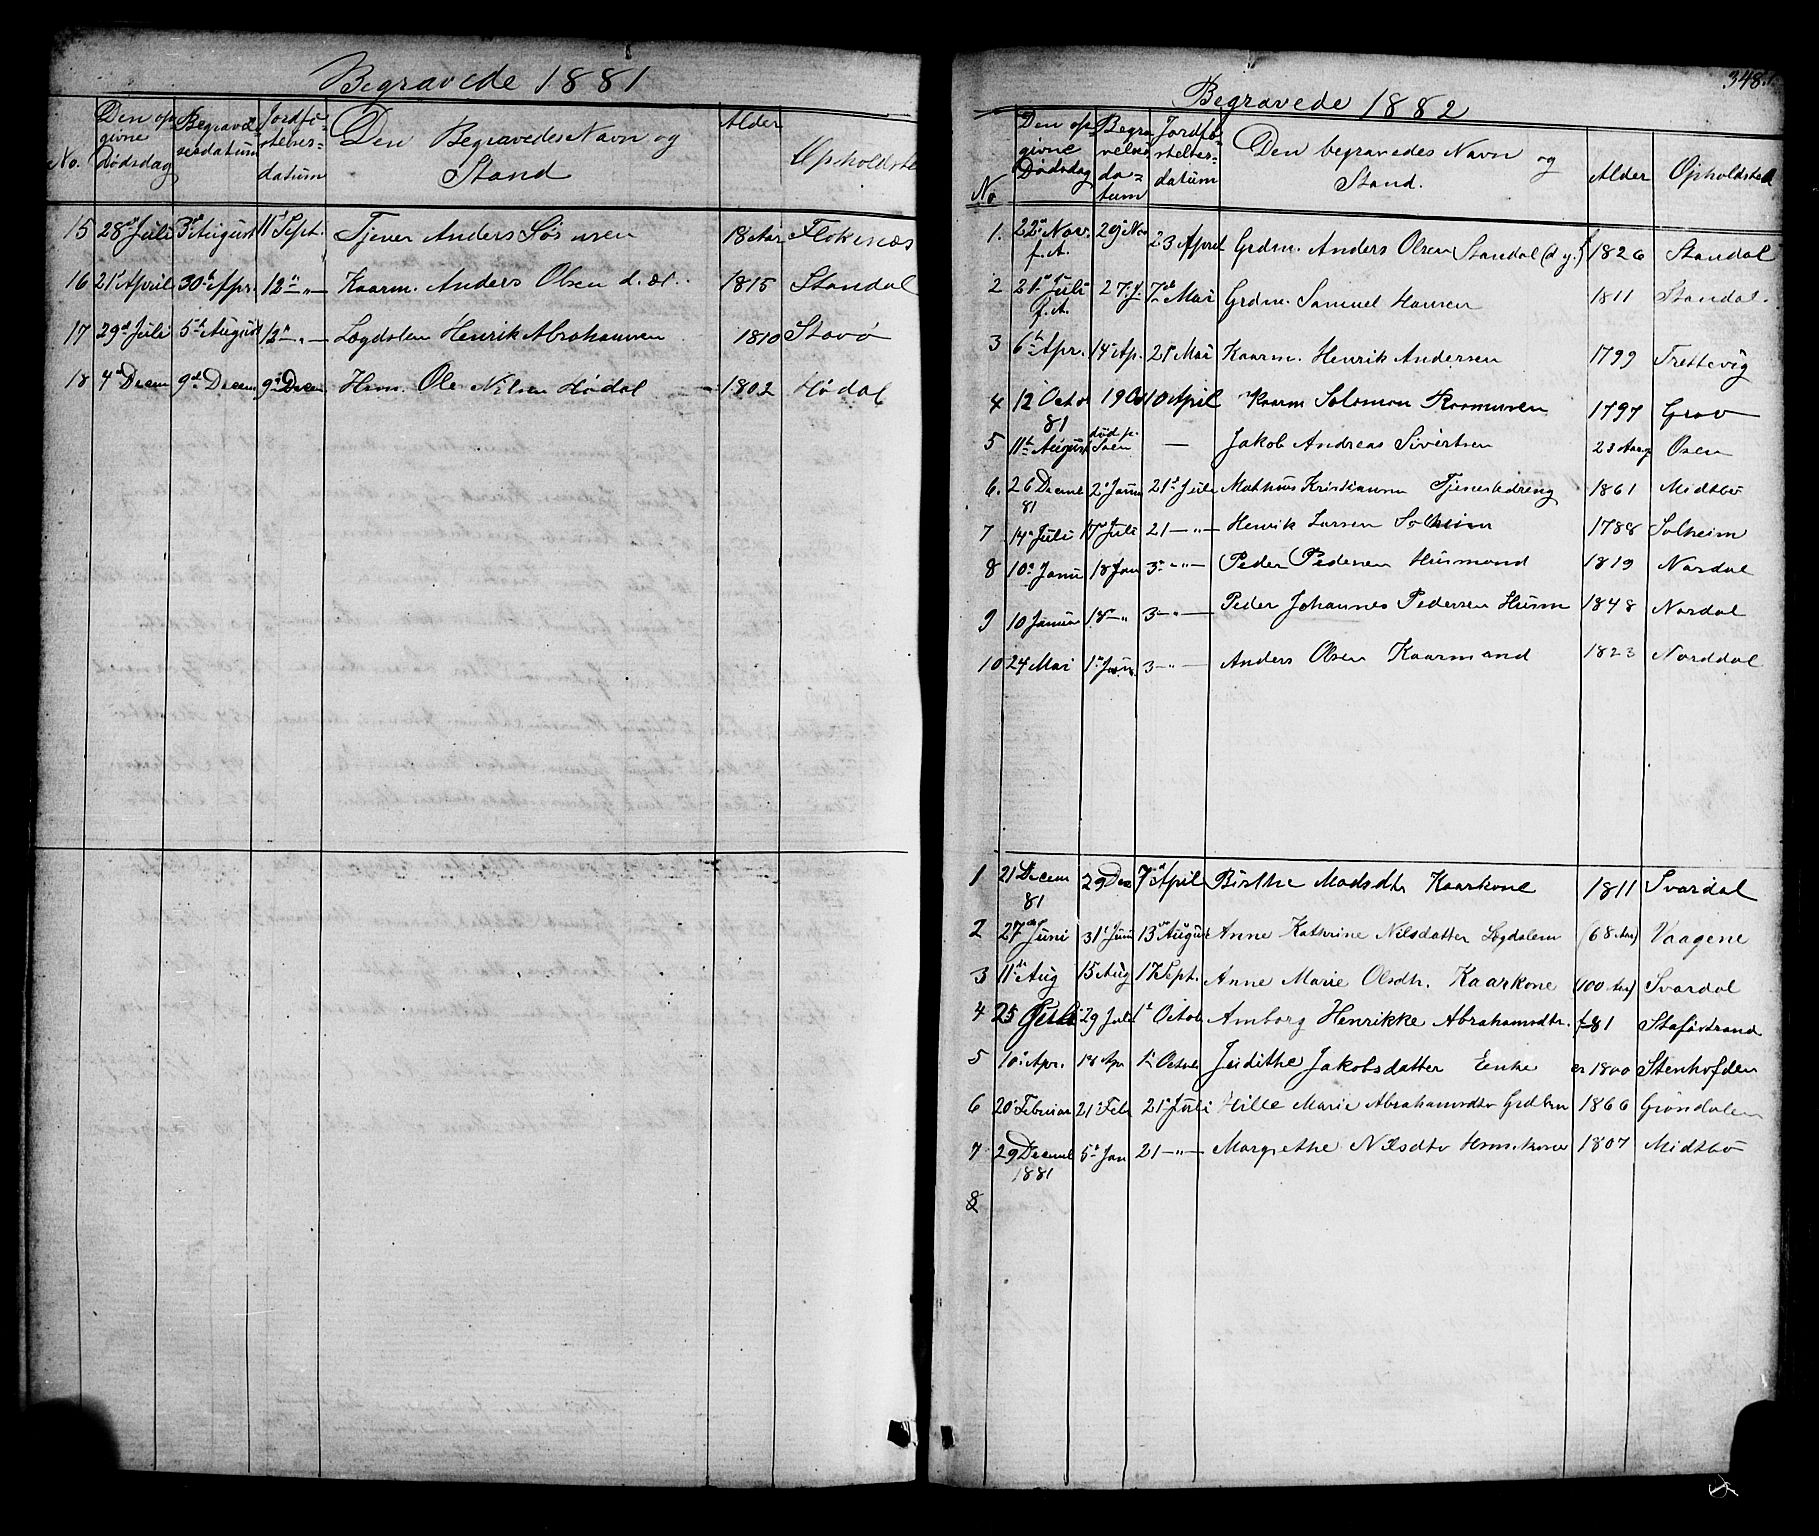 Begravede 1881
No. Den op givne Dødsdag Begravelsesdatum Jordfæstelsesdatum Den Begravedes Navn og Stand Alder Opholdste
15 28de Juli 3die August 11te Sept. Tjener Anders Sørensen 18 Aar Flokenæs
16 21de April 30te Apr. 12te " Kaarm. Anders Olsen d. æl. 1815 Standal
17 29de Juli 5te August 12te " Løgdalen Henrik Abrahamsen 1810 Stavø
18 4de Decem 9de Decem 9de Decem Hsm. Ole Nilsen Hødal 1802 Hødal
348.
Begravede 1882
No Den op givne Dødsdag Begravelsesdatum Jordfæstelsesdatum Den begravedes Navn og Stand. Alder Opholdsted
1. 22de Nov. f. A. 29 Nov 23 April Grdm. Anders Olsen Standal (d y.) 1826 Standal
2 21de Juli f. A. 27 J. 7de Mai Grdm. Samuel Hansen 1811 Standal.
3 6te Apr. 14de Ap. 21de Mai Kaarm. Henrik Andersen 1799 Trettevig
4 12 Octo 81 19 Oct 10 April Kaarm Salomon Rasmussen 1797 Grov
5 11te August død p. Søen — Jakob Andreas Sivertsen 23 Aar g Osen
6. 26 Decmb 81 2de Janu 21de Juli Mathias Kristiansen Tjenestedreng 1861 Midtbø
7 14de Juli 17de Juli 21 — " — Henrik Larsen Solheim 1788 Solheim
8 10de Janu 18 Jan 3de — " — Peder Pedersen Husmand 1819 Nordal
9 10 Januar 18 — " 3 — " — Peder Johannes Pedersen Husm 1848 Nordal
10 24 Mai 1de Jun. 3 — " — Anders Olsen Kaarmand 1823 Norddal
1 21 Decem 81 29 Dec 7de April Birthe Madsdtr Kaarkone 1811 Svardal
2 27de Juni 31te Juni 13de August Anne Kathrine Nilsdatter Løgdalem (68 Aar) Vaagene
3 11te Aug 15 Aug 17 Sept. Anne Marie Olsdtr. Kaarkone (100 Aar) Svardal
4 25 Juli 29 Juli 1te Octob Amborg Henrikke Abrahamsdtr. f 81 Staføstrand
5 10de Apr. 18 Apr 1te Octob Judithe Jakobsdatter Enke ca 1800 Stenhofden
6 20de Februar 21de Feb 21de Juli Hille Marie Abrahamsdtr Grdbrn 1866 Grøndalen
7 29 Decmb 1881 5te Jan 21 — " — Margrethe Nilsdtr Hsm.kone 1807 Midtbø
8